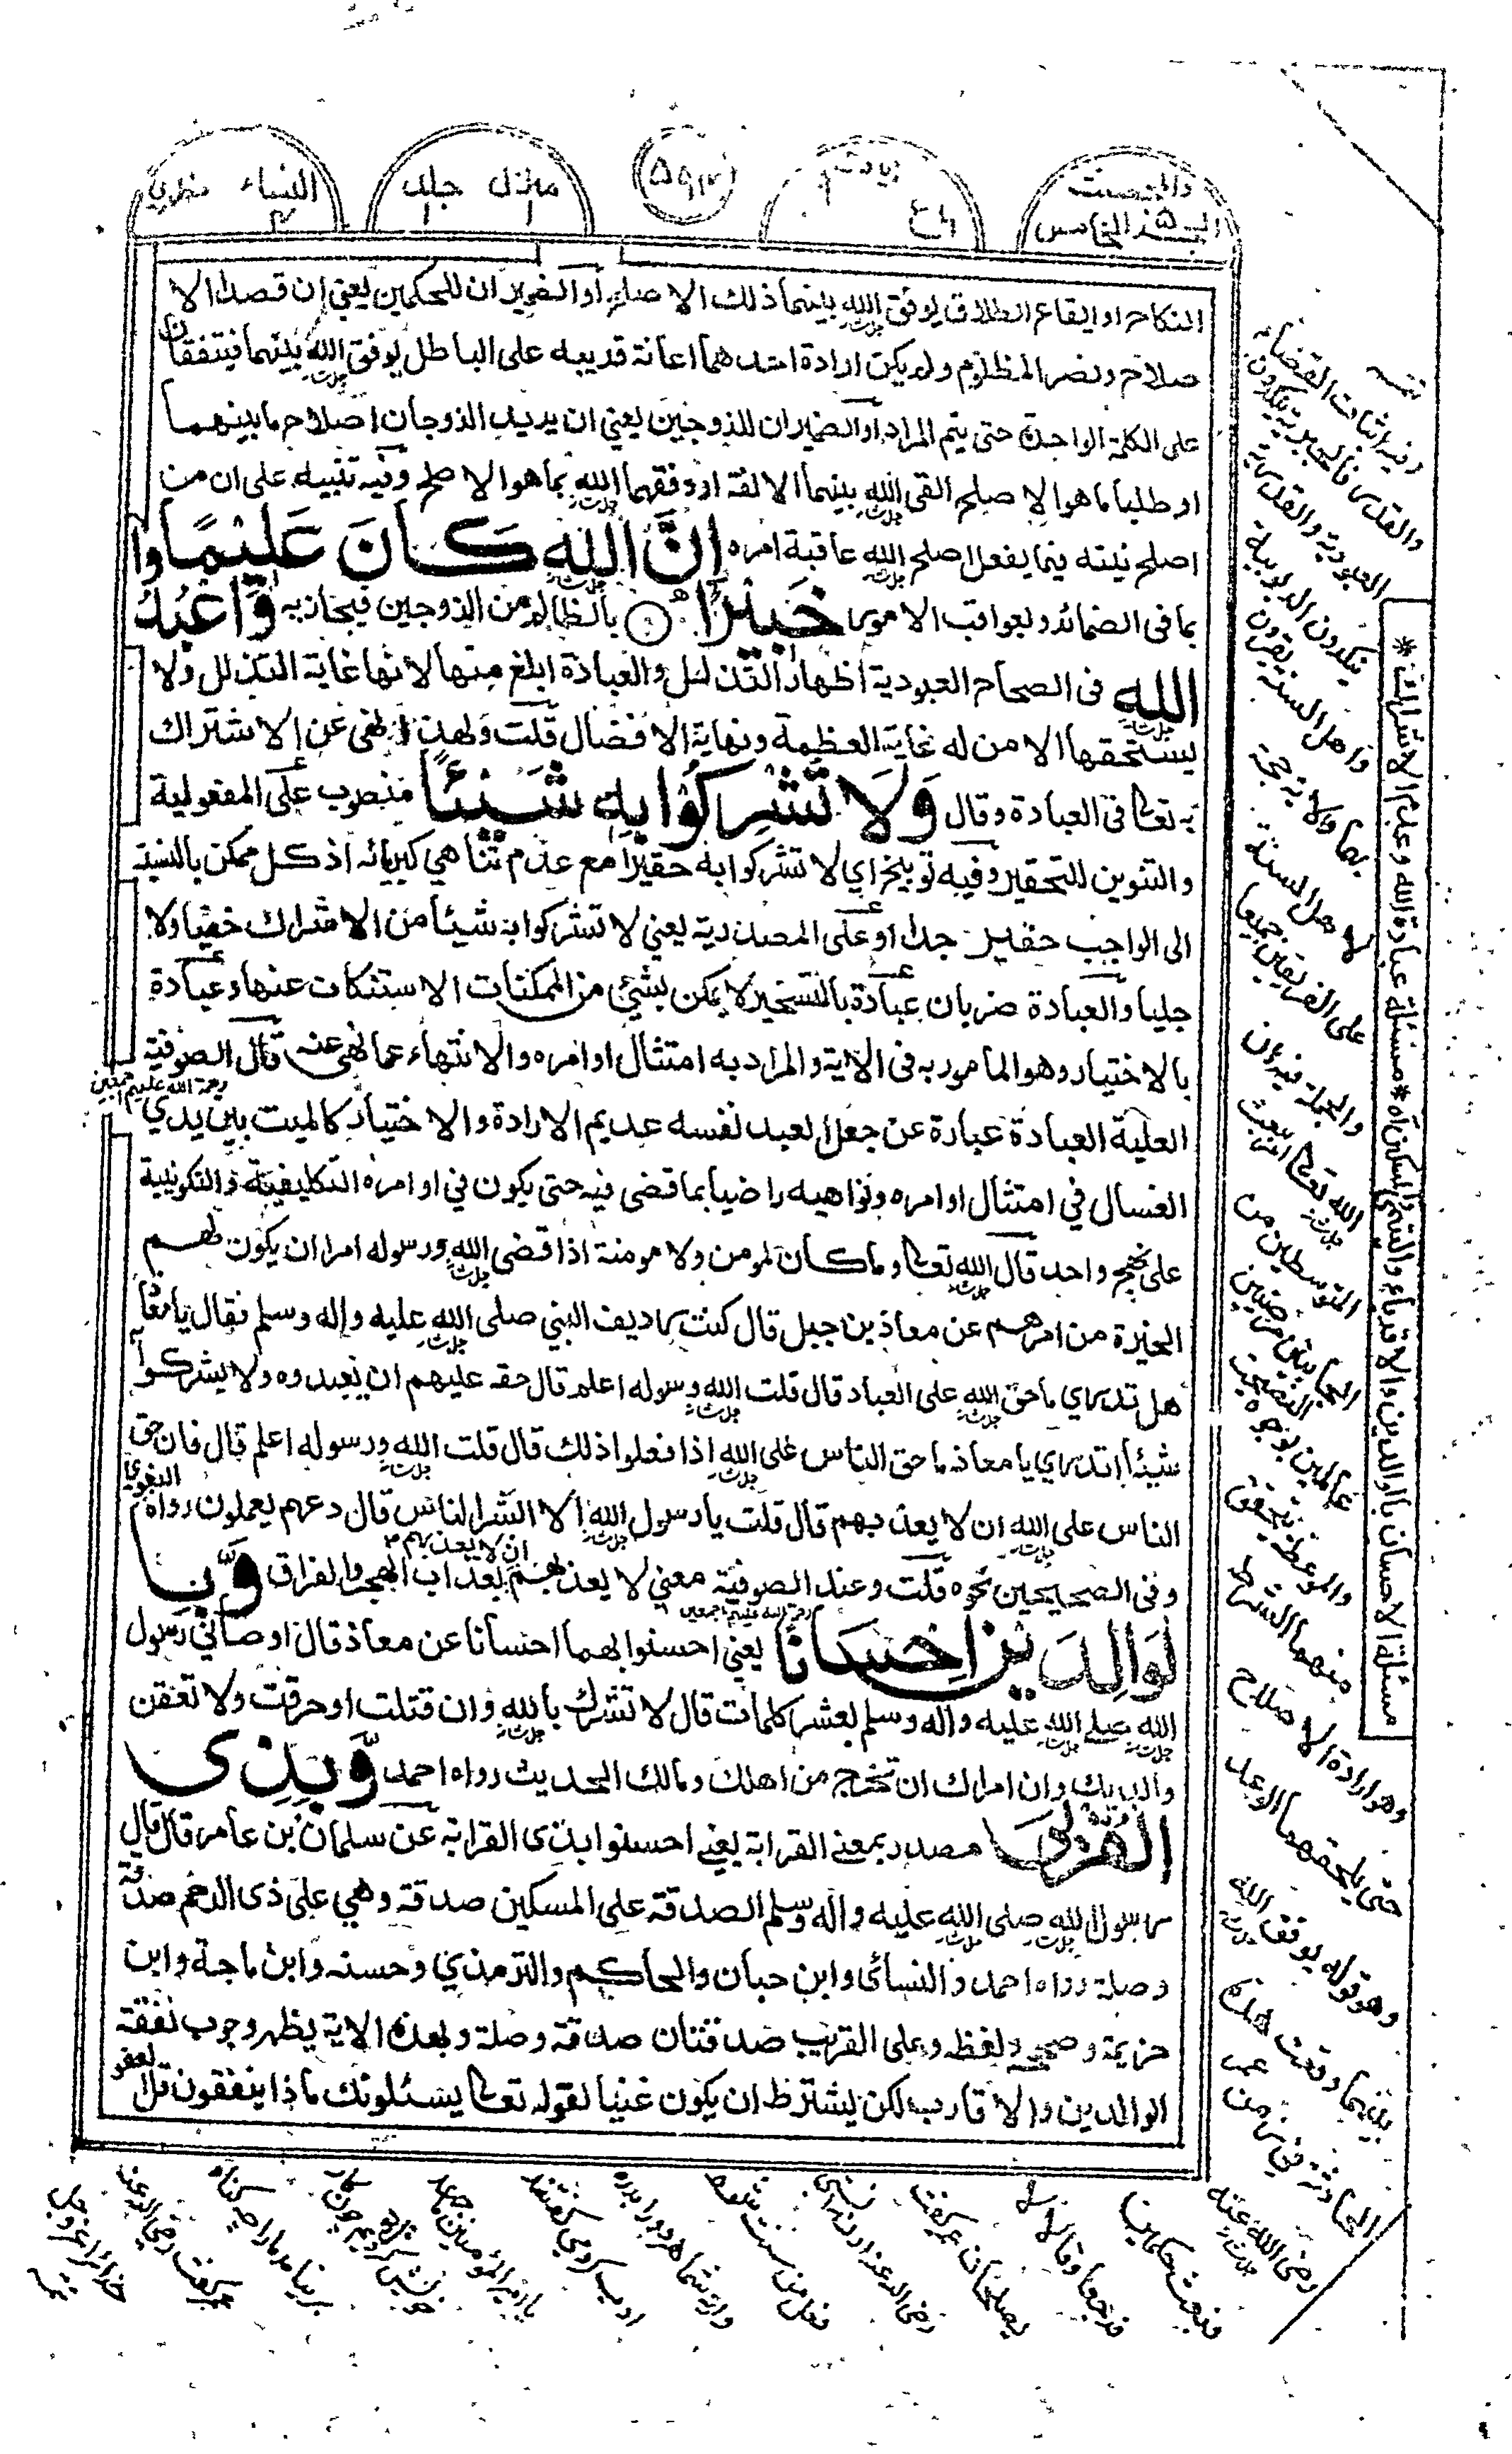 والمحصنت
الجزء الخامس
منزل جلد
النساء مظهري
النكاح او ايقاع الطلاق يوفق الله بينهما ذلك الاصلح أو الضميران للحكمين يعني إن قصدا الا
صلاح ونصر المظلوم ولم يكن ارادة احدهما اعانة قريبه على الباطل يوفق الله بينهما فيتفقان
على الكلمة الواحدة حتى يتم المراد أو الضميران للزوجين يعني ان يريد الزوجان اصلاح ما بينهما
او طلبا ما هوا لا صلح القى الله بينهما الالفة او وفقهما الله بما هوا لا صلح وفيه تنبيه على ان من
اصلح نيته فيما يفعل اصلح الله عاقبة امره إنَّ الله كَانَ عَلِيْمًا
بما فى الضمائر وبعواقب الامور خَبِيْرًا بالظالم من الزوجين فيجازيه وَاعْبُدُوا
الله فى الصحاح العبودية اظهار التذلل والعبادة ابلغ منها لانها غاية التذلل ولا
يستحقها الا من له غاية العظمة ونهاية الافضال قلت ولهذا نهى عن الاشتراك
به تعالى فى العبادة وقال وَلَا تُشْرِكُوْا بِهٖ شَيْئًا منصوب على المفعولية
والتنوين للتحقير وفيه توبيخ اي لا تشركوا به حقيرا مع عدم تناهي كبريائه اذ كل ممكن بالنسبة
الى الواجب حقير جدا او على المصدرية يعني لا تشركوا به شيئا من الاشراك خفيا ولا
جليا والعبادة ضربان عبادة بالتسخير لا يمكن لشيء من الممكنات الاستنكاف عنها وعبادة
بالاختيار وهو المامور به فى الاية والمراد به امتثال اوامره والانتهاء عما نهى عنه قال الصوفية
رحمة الله عليهم اجمعين
العلية العبادة عبارة عن جعل العبد نفسه عديم الارادة والاختيار كالميت بين يدي
الغسال في امتثال اوامره ونواهيه راضيا بما قضى فيه حتى يكون في اوامره التكليفية والتكوينية
على نهج واحد قال الله تعالى وما كان لمومن ولا مومنة اذا قضى الله ورسوله امرا ان يكون لهم
الخيرة من امرهم عن معاذ بن جبل قال كنت رديف النبي صلى الله عليه واله وسلم فقال يا معاذ
هل تدري ما حق الله على العباد قال قلت الله ورسوله اعلم قال حقه عليهم ان يعبدوه ولا يشركوا به
شيئا اتدري يا معاذ ما حق الناس على الله اذا فعلوا ذلك قال قلت الله ورسوله اعلم قال فان حق
الناس على الله ان لا يعذبهم قال قلت يا رسول الله الا ابشر الناس قال دعهم يعملون رواه البغوي
وفى الصحيحين نحوه قلت وعند الصوفية معنى لا يعذبهم ان لا يعذبهم بعذاب الهجر والفراق وَّبِا
رحمة الله عليهم اجمعين
لْوَالِدَيْنِ اِحْسَانًا يعني احسنوا بهما احسانا عن معاذ قال اوصاني رسول
الله صلى الله عليه واله وسلم بعشر كلمات قال لا تشرك بالله وان قتلت او حرقت ولا تعقن
والديك وان امراك ان تخرج من اهلك ومالك الحديث رواه احمد وَّبِذِى
الْقُرْبٰى مصدر بمعنى القرابة يعني احسنوا بذى القرابة عن سلمان بن عامر قال قال
رسول الله صلى الله عليه واله وسلم الصدقة على المسكين صدقة وهي على ذى الرحم صدقة
وصلة رواه احمد والنسائى وابن حبان والحاكم والترمذي وحسنه وابن ماجة وابن
خزيمة وصححه ولفظه وعلى القريب صدقتان صدقة وصلة وبهذه الاية يظهر وجوب نفقة
الوالدين والاقارب لكن يشترط ان يكون غنيا لقوله تعالى يسئلونك ماذا ينفقون قل العفو
مسئلة الاحسان بالوالدين والاقرباء واليتمى والمسكين اه * مسئلة عبادة الله وعدم الاشراك *
وفيه اثبات القضاء
والقدر فالجبرية ينكرون
العبودية والقدرية
ينكرون الربوبية
واهل السنة يقرون
بهما والاية حجة
لاهل السنة
على الفريقين جميعا
والجملة فيه ان
الله تعالى
المتوسطين من
الجانبين
عالمين بوجوه النصيحت
والموعظة يتحقق
منهما الشرط
وهو ارادة الاصلاح
حتى يلحقهما الوعد
وهو قوله يوفق الله
بينهما وقعت هذه
الحادثة في زمن عمر
رضى الله عنه
فبعث حكمين
فرجعا وقالا لا
يصلحان عمر كفت
رضى الله عنه